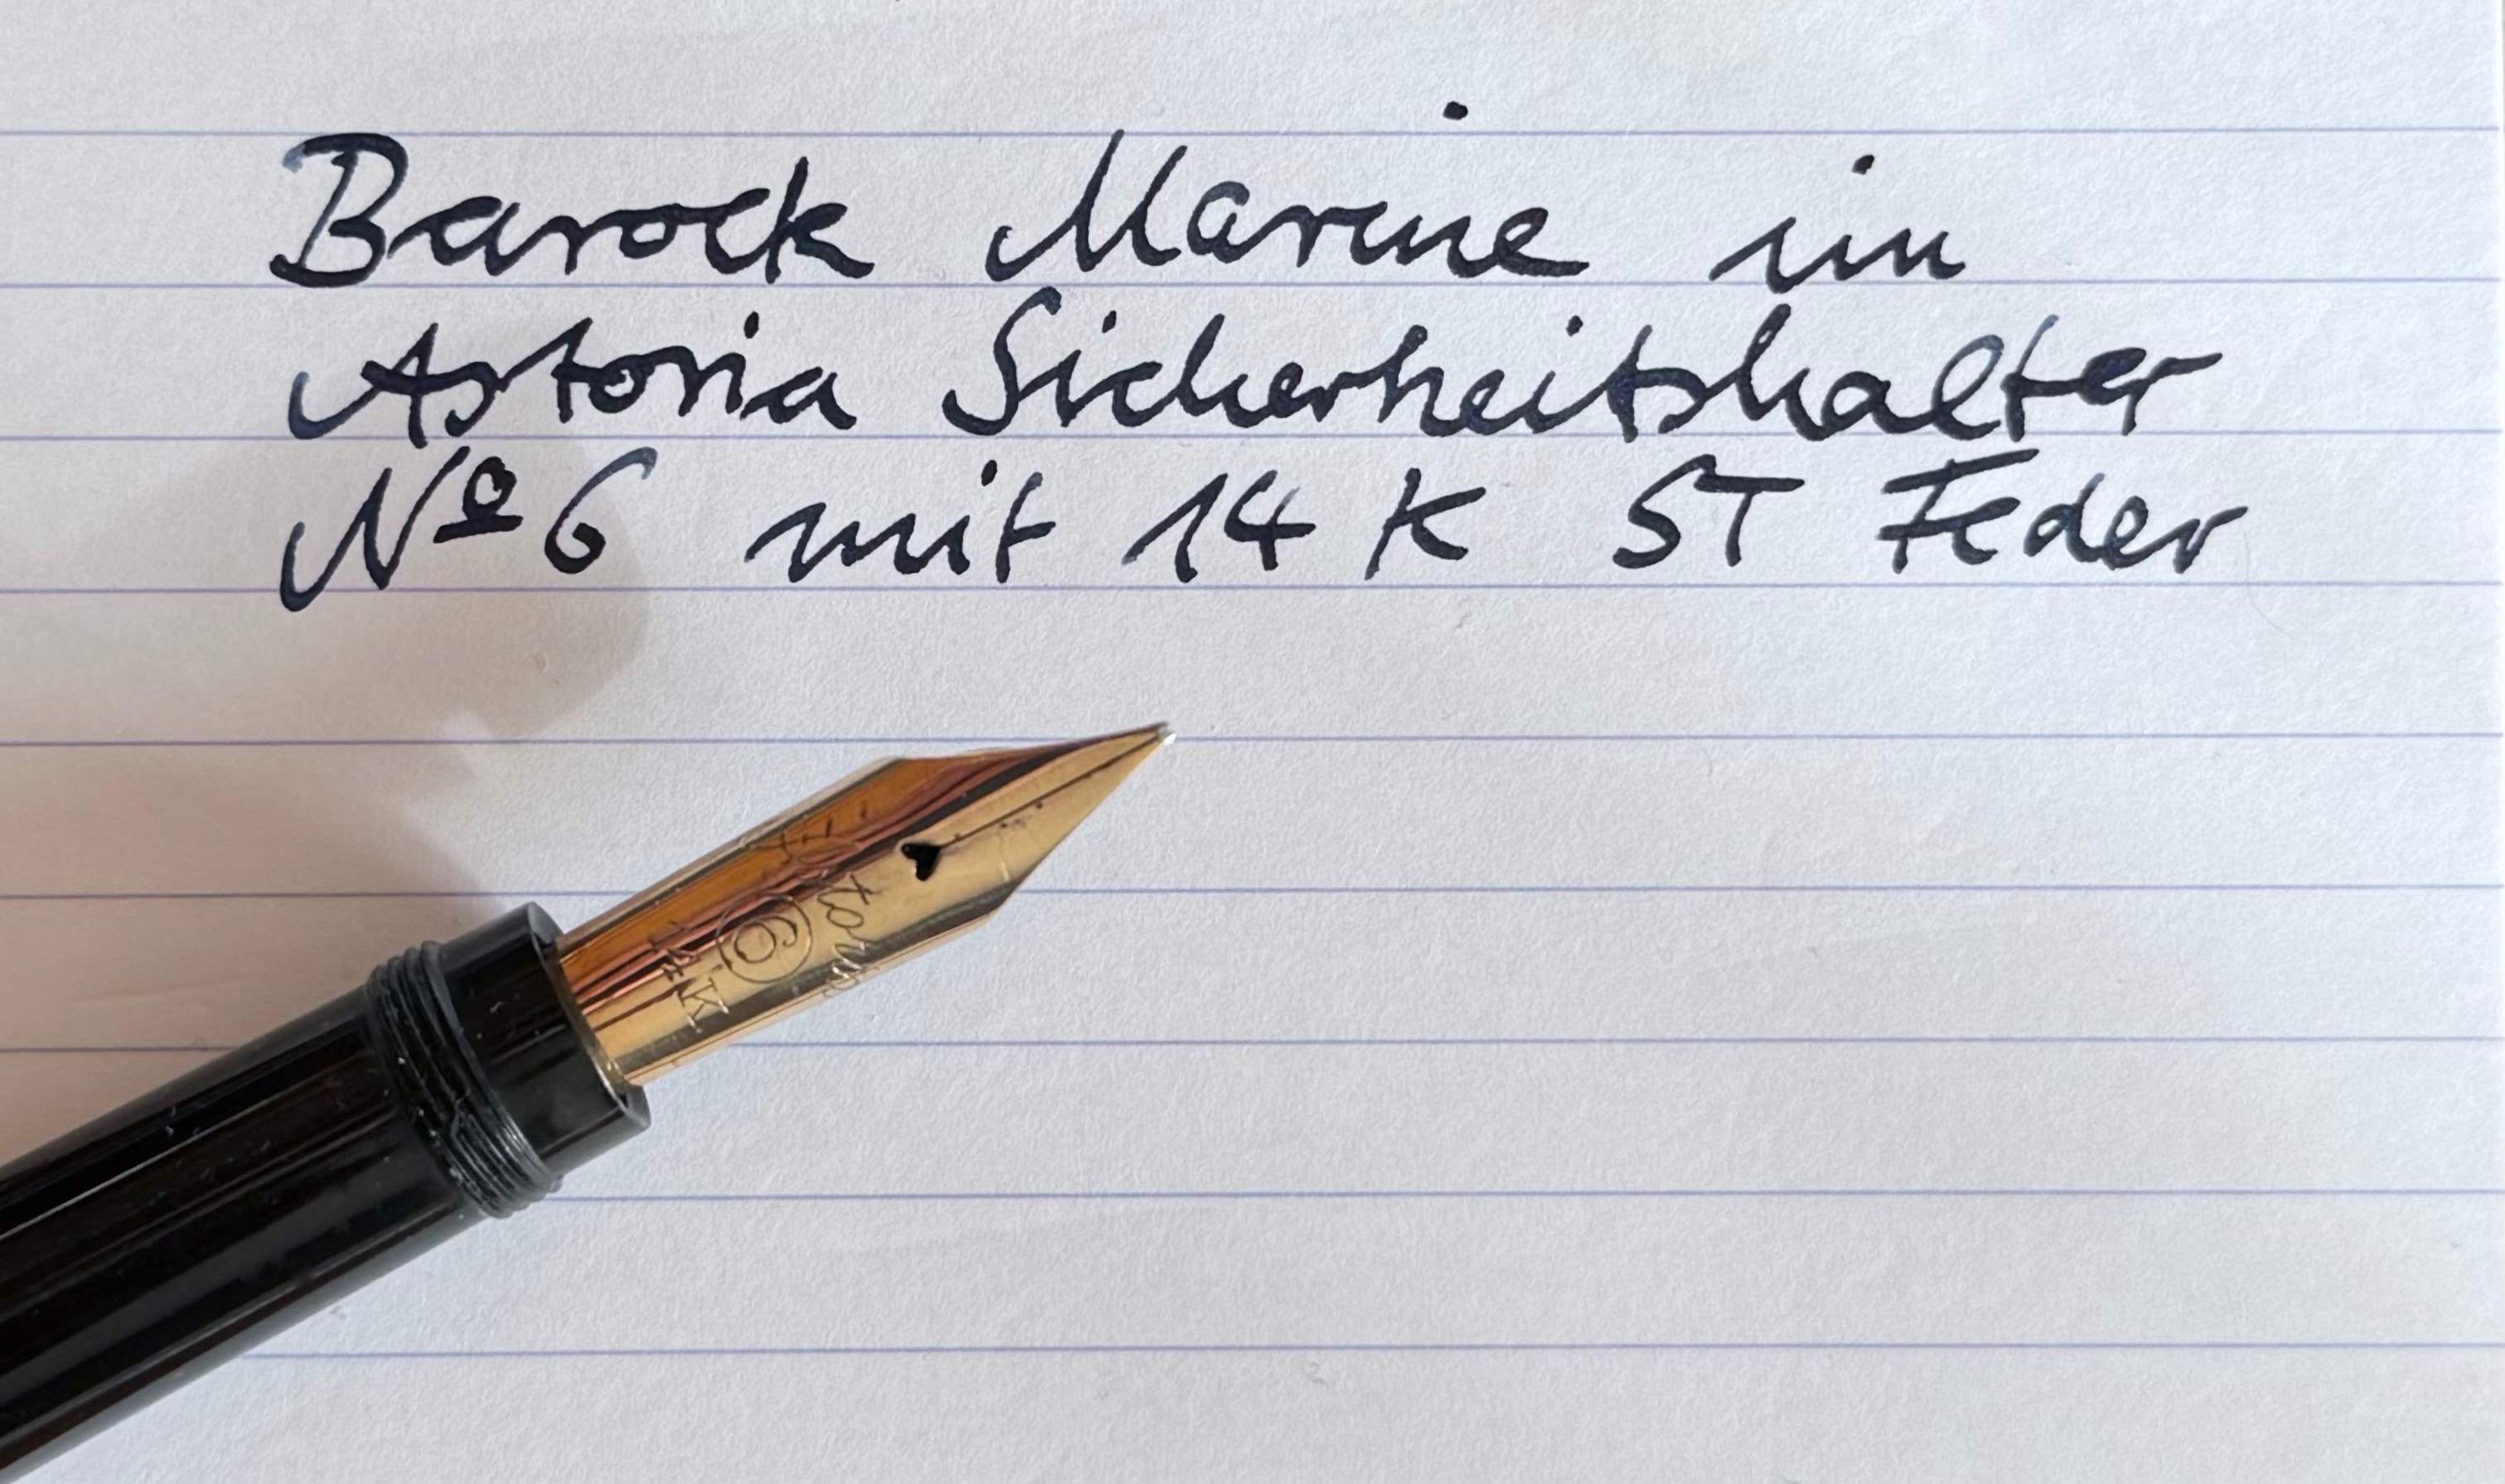 Barock Marine im
Astoria Sicherheitshalter
Nº 6 mit 14 K ST Feder
6
14K